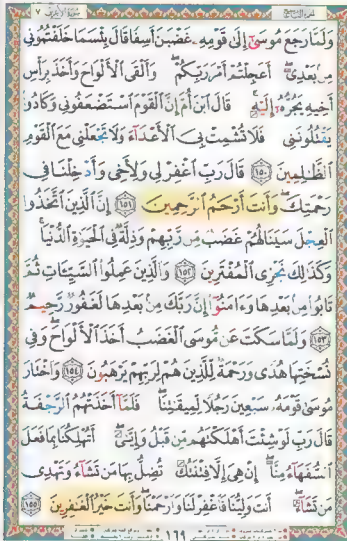 الجزء التاسع سورة الأعراف ٧
وَلَمَّا رَجَعَ مُوسَىٰ إِلَىٰ قَوْمِهِ غَضْبَٰنَ أَسِفًا قَالَ بِئْسَمَا خَلَفْتُمُونِي
مِنۢ بَعْدِيٓ أَعَجِلْتُمْ أَمْرَ رَبِّكُمْ وَأَلْقَى الْأَلْوَاحَ وَأَخَذَ بِرَأْسِ
أَخِيهِ يَجُرُّهُۥٓ إِلَيْهِ قَالَ ابْنَ أُمَّ إِنَّ الْقَوْمَ اسْتَضْعَفُونِي وَكَادُوا
يَقْتُلُونَنِي فَلَا تُشْمِتْ بِيَ الْأَعْدَآءَ وَلَا تَجْعَلْنِي مَعَ الْقَوْمِ
الظَّٰلِمِينَ ١٥٠ قَالَ رَبِّ اغْفِرْ لِي وَلِأَخِي وَأَدْخِلْنَا فِي
رَحْمَتِكَ وَأَنتَ أَرْحَمُ الرَّٰحِمِينَ ١٥١ إِنَّ الَّذِينَ اتَّخَذُوا
الْعِجْلَ سَيَنَالُهُمْ غَضَبٌ مِّن رَّبِّهِمْ وَذِلَّةٌ فِي الْحَيَوٰةِ الدُّنْيَا
وَكَذَٰلِكَ نَجْزِي الْمُفْتَرِينَ ١٥٢ وَالَّذِينَ عَمِلُوا السَّيِّـَٔاتِ ثُمَّ
تَابُوا مِنۢ بَعْدِهَا وَءَامَنُوٓا إِنَّ رَبَّكَ مِنۢ بَعْدِهَا لَغَفُورٌ رَّحِيمٌ
١٥٣ وَلَمَّا سَكَتَ عَن مُّوسَى الْغَضَبُ أَخَذَ الْأَلْوَاحَ وَفِي
نُسْخَتِهَا هُدًى وَرَحْمَةٌ لِّلَّذِينَ هُمْ لِرَبِّهِمْ يَرْهَبُونَ ١٥٤ وَاخْتَارَ
مُوسَىٰ قَوْمَهُۥ سَبْعِينَ رَجُلًا لِّمِيقَٰتِنَا فَلَمَّآ أَخَذَتْهُمُ الرَّجْفَةُ
قَالَ رَبِّ لَوْ شِئْتَ أَهْلَكْتَهُم مِّن قَبْلُ وَإِيَّٰيَ أَتُهْلِكُنَا بِمَا فَعَلَ
السُّفَهَآءُ مِنَّآ إِنْ هِيَ إِلَّا فِتْنَتُكَ تُضِلُّ بِهَا مَن تَشَآءُ وَتَهْدِي
مَن تَشَآءُ أَنتَ وَلِيُّنَا فَاغْفِرْ لَنَا وَارْحَمْنَا وَأَنتَ خَيْرُ الْغَٰفِرِينَ ١٥٥
١٦٩